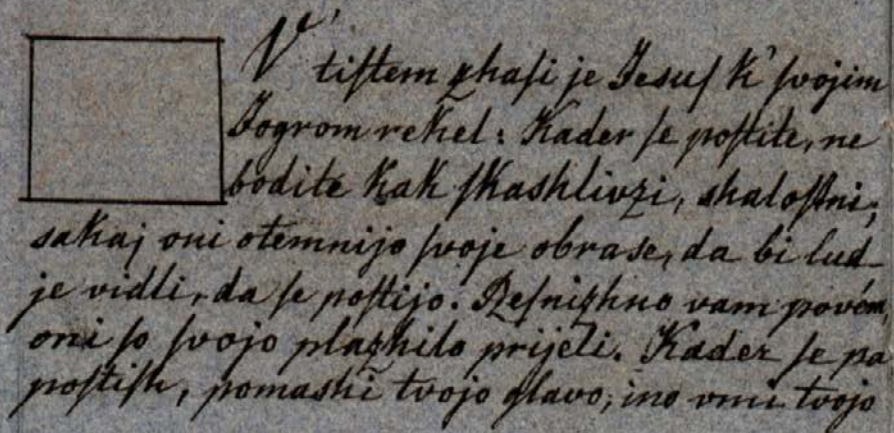 V' tiſtem zhaſi je Jesuſ k' ſvojim
Jogrom rekel: Kader ſe poſtite, ne
bodite kak ſkashlivzi, shaloſtni;
sakaj oni otemnijo ſvoje obrase, da bi lud-
je vidli, da ſe poſtijo. Reſnizhno vam povém
oni ſo ſvojo plazhilo prijeli. Kader ſe pa
poſtiſh, pomashi tvojo glavo, ino vmi tvojo